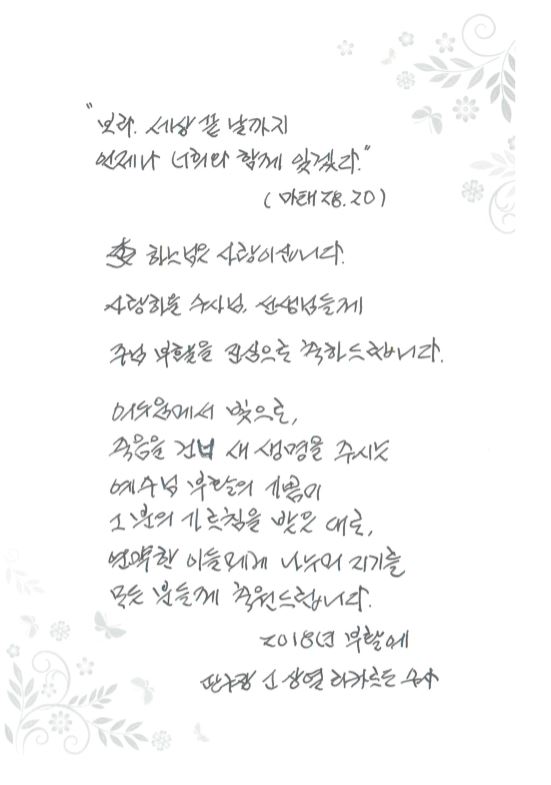 "보라. 세상 끝 날까지
언제나 너희와 함께 있겠다."
(마태 28.20)
하느님은 사랑이십니다.
사랑하올 수사님, 선생님들께
주님 부활을 진심으로 축하드립니다.
어두움에서 빛으로,
죽음을 건너 새 생명을 주시는
예수님 부활의 기쁨이
그분의 가르침을 받은 대로,
연약한 이들에게 나누며 지기를
모든 분들께 축원드립니다.
2018년 부활에
관구장 신상열 리카르도 수사